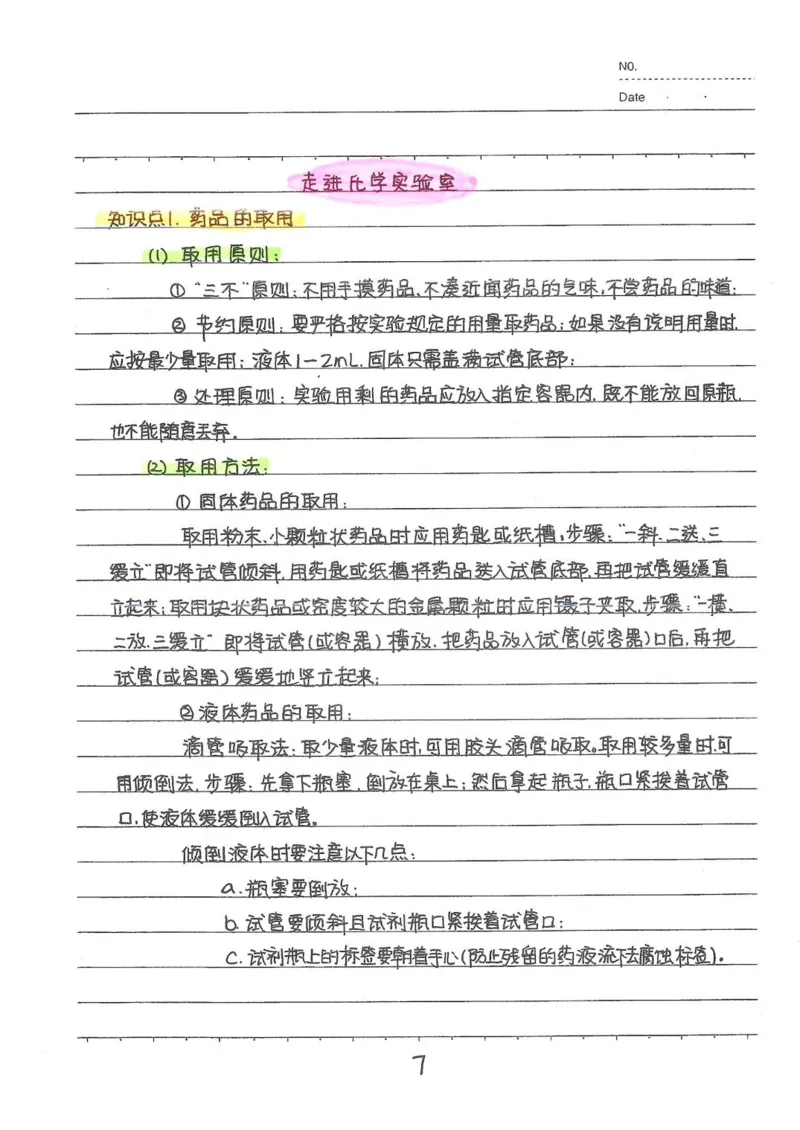 NO.
Date
走进化学实验室
知识点1. 药品的取用
(1) 取用原则:
① "三不"原则: 不用手摸药品、不凑近闻药品的气味,不尝药品的味道;
② 节约原则: 要严格按实验规定的用量取药品;如果没有说明用量时.
应按最少量取用; 液体1-2mL.固体只需盖满试管底部;
③ 处理原则: 实验用剩的药品应放入指定容器内. 既不能放回原瓶.
也不能随意丢弃.
(2) 取用方法:
① 固体药品的取用:
取用粉末、小颗粒状药品时应用药匙或纸槽,步骤:"一斜.二送.三
缓立"即将试管倾斜.用药匙或纸槽将药品送入试管底部.再把试管缓缓直
立起来;取用块状药品或密度较大的金属颗粒时应用镊子夹取.步骤:"一横.
二放.三缓立" 即将试管(或容器) 横放.把药品放入试管(或容器)口后,再把
试管(或容器)缓缓地竖立起来;
② 液体药品的取用:
滴管吸取法: 取少量液体时,可用胶头滴管吸取。取用较多量时.可
用倾倒法. 步骤: 先拿下瓶塞.倒放在桌上;然后拿起瓶子.瓶口紧挨着试管
口.使液体缓缓倒入试管。
倾倒液体时要注意以下几点:
a. 瓶塞要倒放;
b. 试管要倾斜且试剂瓶口紧挨着试管口;
c. 试剂瓶上的标签要朝着手心(防止残留的药液流下去腐蚀标签).
7